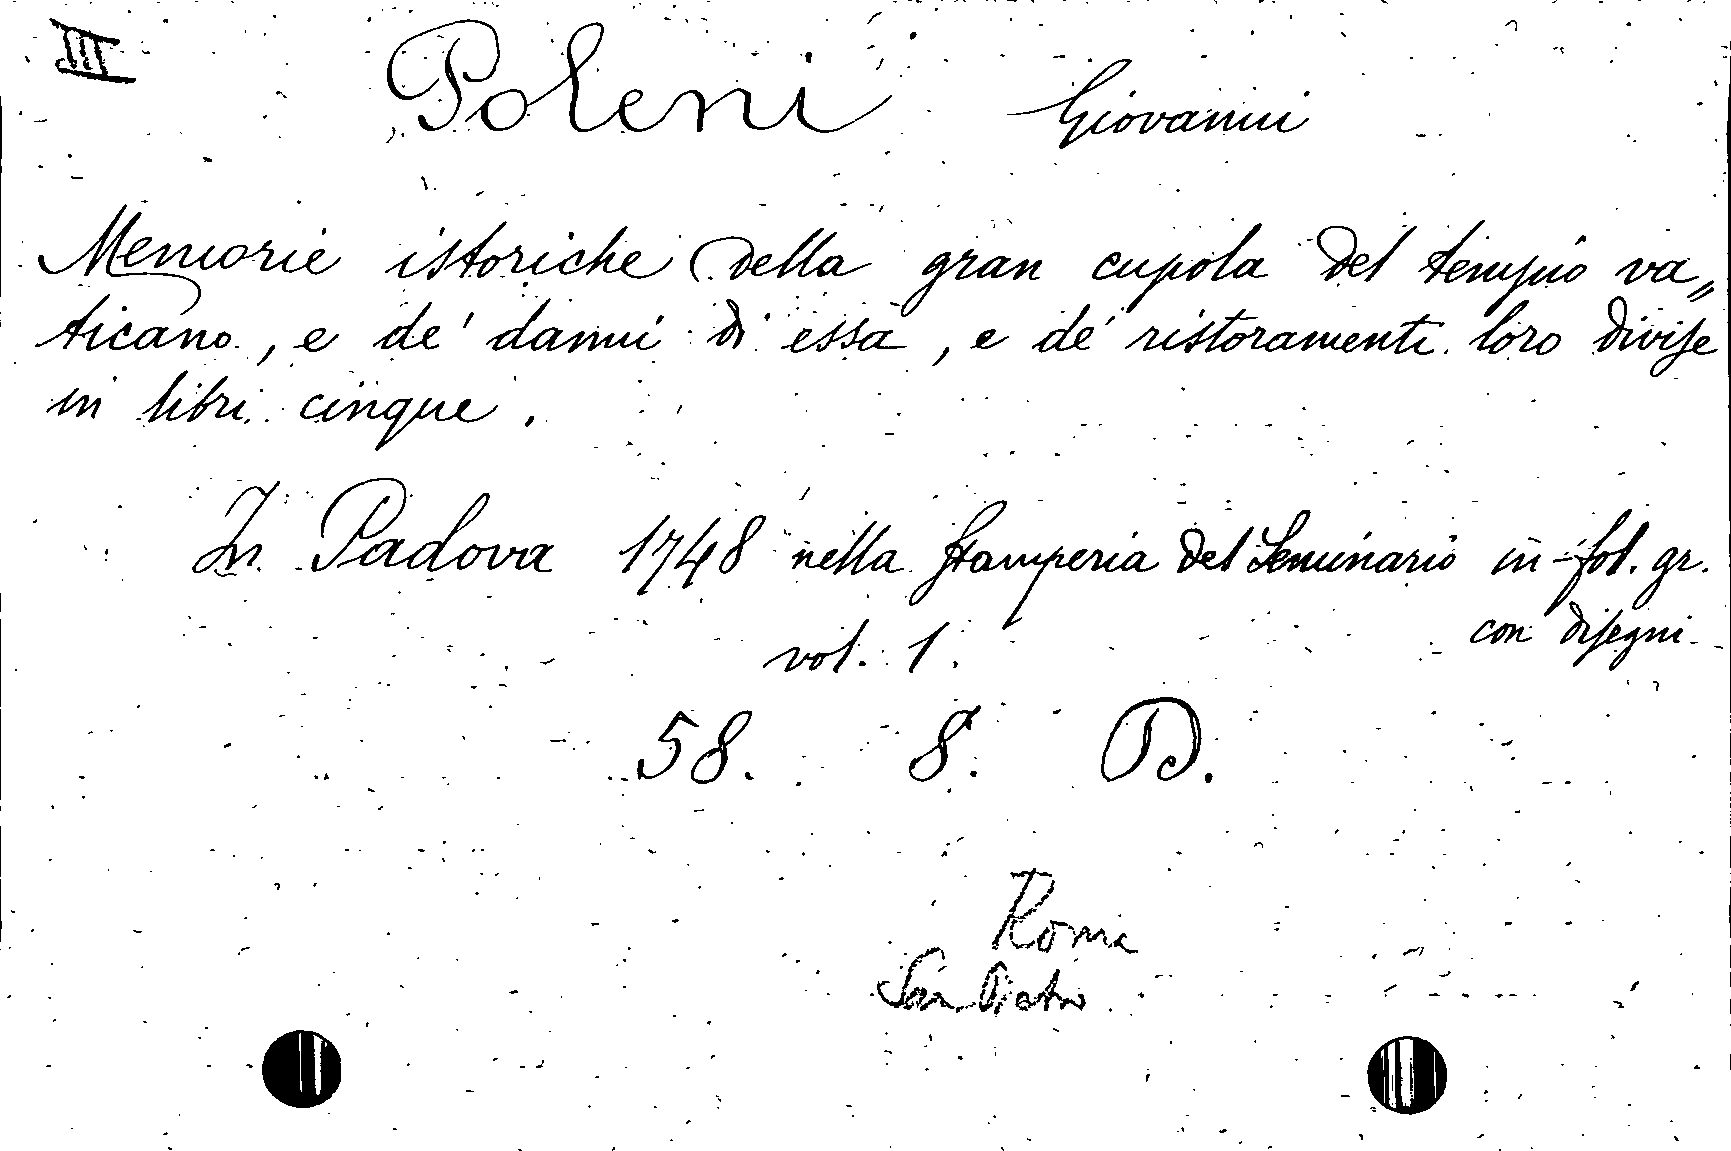 III
Poleni Giovanni
Memorie istoriche della gran cupola del tempio va„
ticano, e de' danni di essa, e de' ristoramenti loro divise
in libri cinque.
In Padova 1748 nella Stamperia del Seminario in-fol. gr.
con disegni
vol. 1.
58. 8. D.
Roma
San Pietro